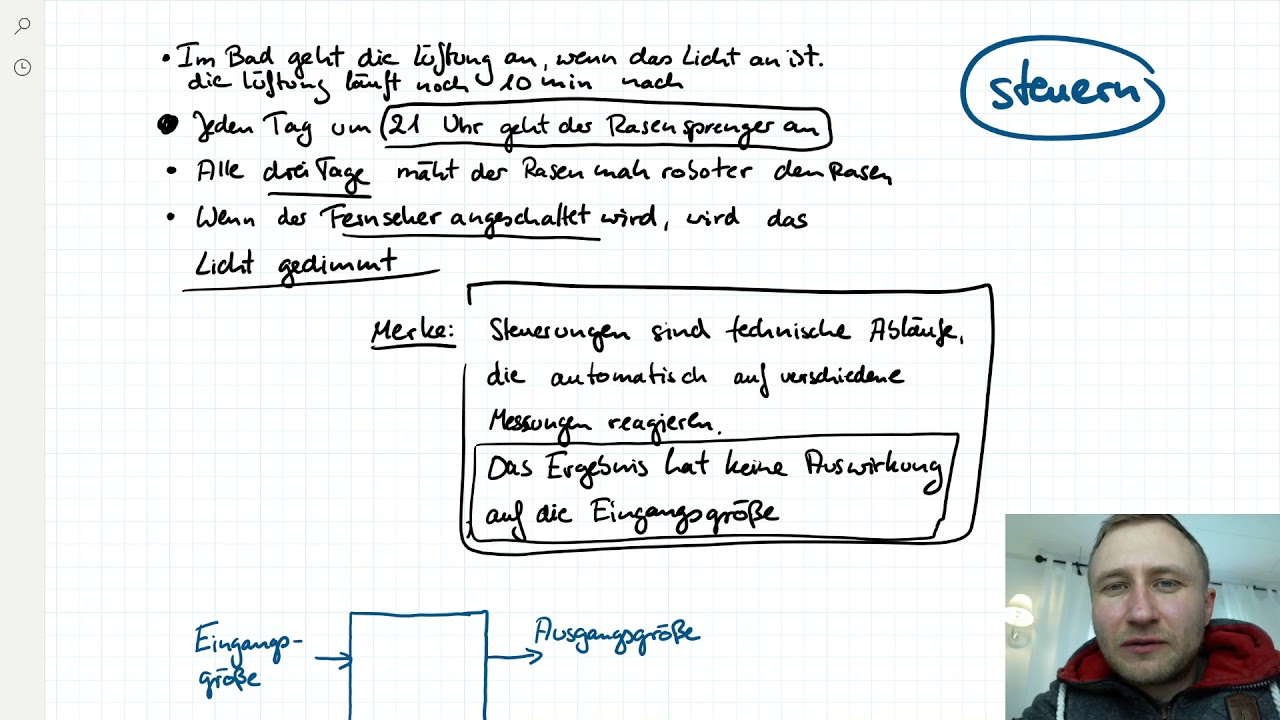 • Im Bad geht die Lüftung an, wenn das Licht an ist.
die Lüftung läuft noch 10 min nach
• Jeden Tag um 21 Uhr geht der Rasensprenger an
• Alle drei Tage mäht der Rasenmähroboter den Rasen
• Wenn der Fernseher angeschaltet wird, wird das
Licht gedimmt
steuern
Merke: Steuerungen sind technische Abläufe,
die automatisch auf verschiedene
Messungen reagieren.
Das Ergebnis hat keine Auswirkung
auf die Eingangsgröße
Eingangs-
größe
Ausgangsgröße